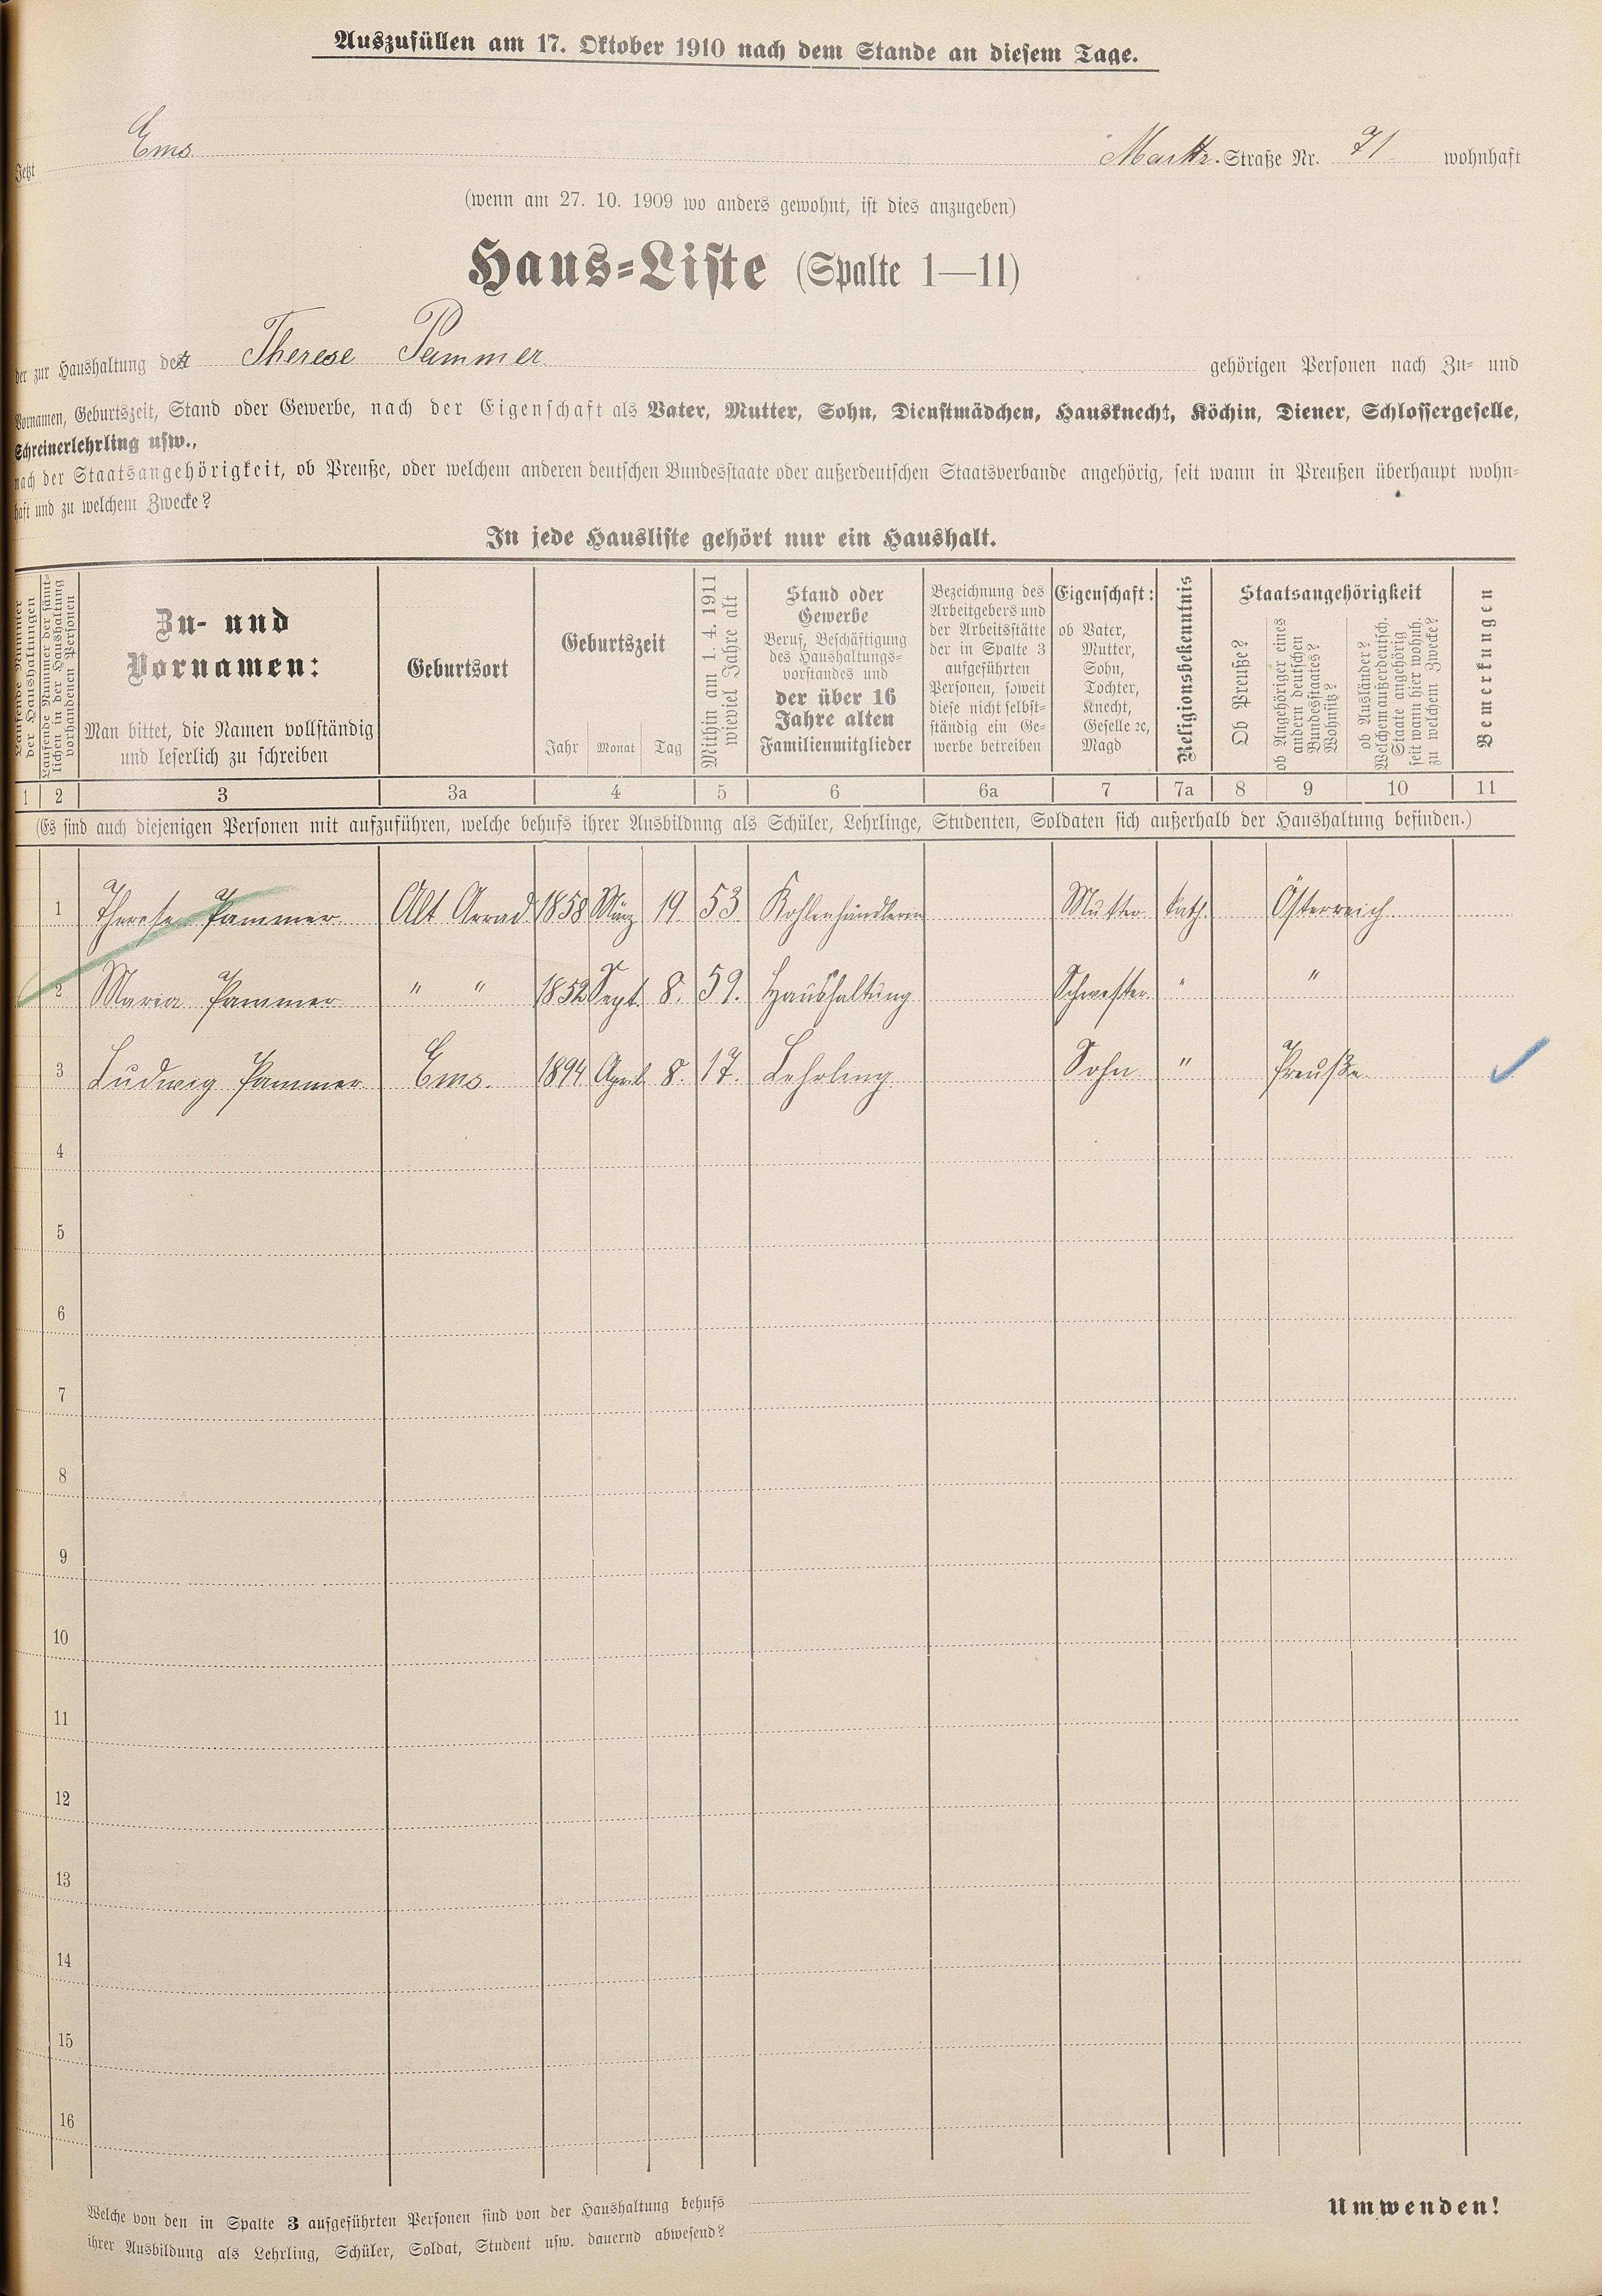 Auszufüllen am 17. Oktober 1910 nach dem Stande an diesem Tage.
Jetzt Ems Marktr. Straße Nr. 71 wohnhaft
(wenn am 27. 10. 1909 wo anders gewohnt, ist dies anzugeben)
Haus-Liste (Spalte 1—11)
der zur Haushaltung der Therese Pammer gehörigen Personen nach Zu- und
Vornamen, Geburtszeit, Stand oder Gewerbe, nach der Eigenschaft als Vater, Mutter, Sohn, Dienstmädchen, Hausknecht, Köchin, Diener, Schlossergeselle,
Schreinerlehrling usw.,
nach der Staatsangehörigkeit, ob Preuße, oder welchem anderen deutschen Bundesstaate oder außerdeutschen Staatsverbande angehörig, seit wann in Preußen überhaupt wohn-
haft und zu welchem Zwecke?
In jede Hausliste gehört nur ein Haushalt.
Laufende Nummer
der Haushaltungen
Laufende Nummer der sämt-
lichen in der Haushaltung
vorhandenen Personen
Zu- und
Vornamen:
Man bittet, die Namen vollständig
und leserlich zu schreiben
Geburtsort
Geburtszeit
Jahr Monat Tag
Mithin am 1. 4. 1911
wieviel Jahre alt
Stand oder
Gewerbe
Beruf, Beschäftigung
des Haushaltungs-
vorstandes und
der über 16
Jahre alten
Familienmitglieder
Bezeichnung des
Arbeitgebers und
der Arbeitsstätte
der in Spalte 3
aufgeführten
Personen, soweit
diese nicht selbst-
ständig ein Ge-
werbe betreiben
Eigenschaft:
ob Vater,
Mutter,
Sohn,
Tochter,
Knecht,
Geselle ꝛc,
Magd
Religionsbekenntnis
Staatsangehörigkeit
Ob Preuße?
ob Angehöriger eines
andern deutschen
Bundesstaates?
Wohnsitz?
ob Ausländer?
Welchem außerdeutsch.
Staate angehörig
seit wann hier wohnh.
zu welchem Zwecke?
Bemerkungen
1 2 3 3a 4 5 6 6a 7 7a 8 9 10 11
(Es sind auch diejenigen Personen mit aufzuführen, welche behufs ihrer Ausbildung als Schüler, Lehrlinge, Studenten, Soldaten sich außerhalb der Haushaltung befinden.)
1 Therese Pammer Alt 1858 März 19 53 Kohlenhändlerin Mutter kath. Österreich
2 Maria Pammer " " 1852 Sept. 8. 59. Haushaltung Schwester " "
3 Ludwig Pammer Ems. 1894 April 8. 17. Lehrling Sohn " Preuße
4
5
6
7
8
9
10
11
12
13
14
15
16
Welche von den in Spalte 3 aufgeführten Personen sind von der Haushaltung behufs
ihrer Ausbildung als Lehrling, Schüler, Soldat, Student usw. dauernd abwesend?
Umwenden!